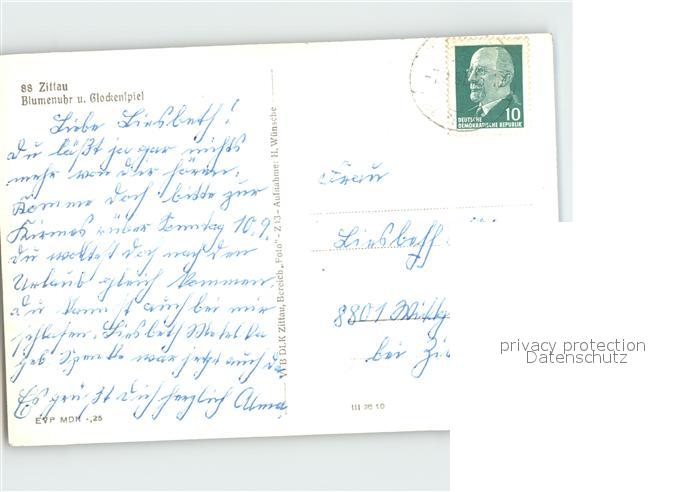 88 Zittau
Blumenuhr u. Glockenspiel
Liebe Liesbeth!
Du läßt ja gar nichts
mehr von dir hören.
Komme doch bitte zur
Kirmes rüber Sonntag 10.9.
du wolltest doch nach den
Urlaub gleich kommen.
du kannst auch bei mir
schlafen. Liesbeth
war jetzt auch da
Es grüßt Dich herzlich Alma
EVP MDN -,25
VEB DLK Zittau, Bereich „Foto" - Z 13 - Aufnahme: H. Wünsche
10
DEUTSCHE
DEMOKRATISCHE REPUBLIK
Frau
Liesbeth
8801
bei
III 28 10
privacy protection
Datenschutz